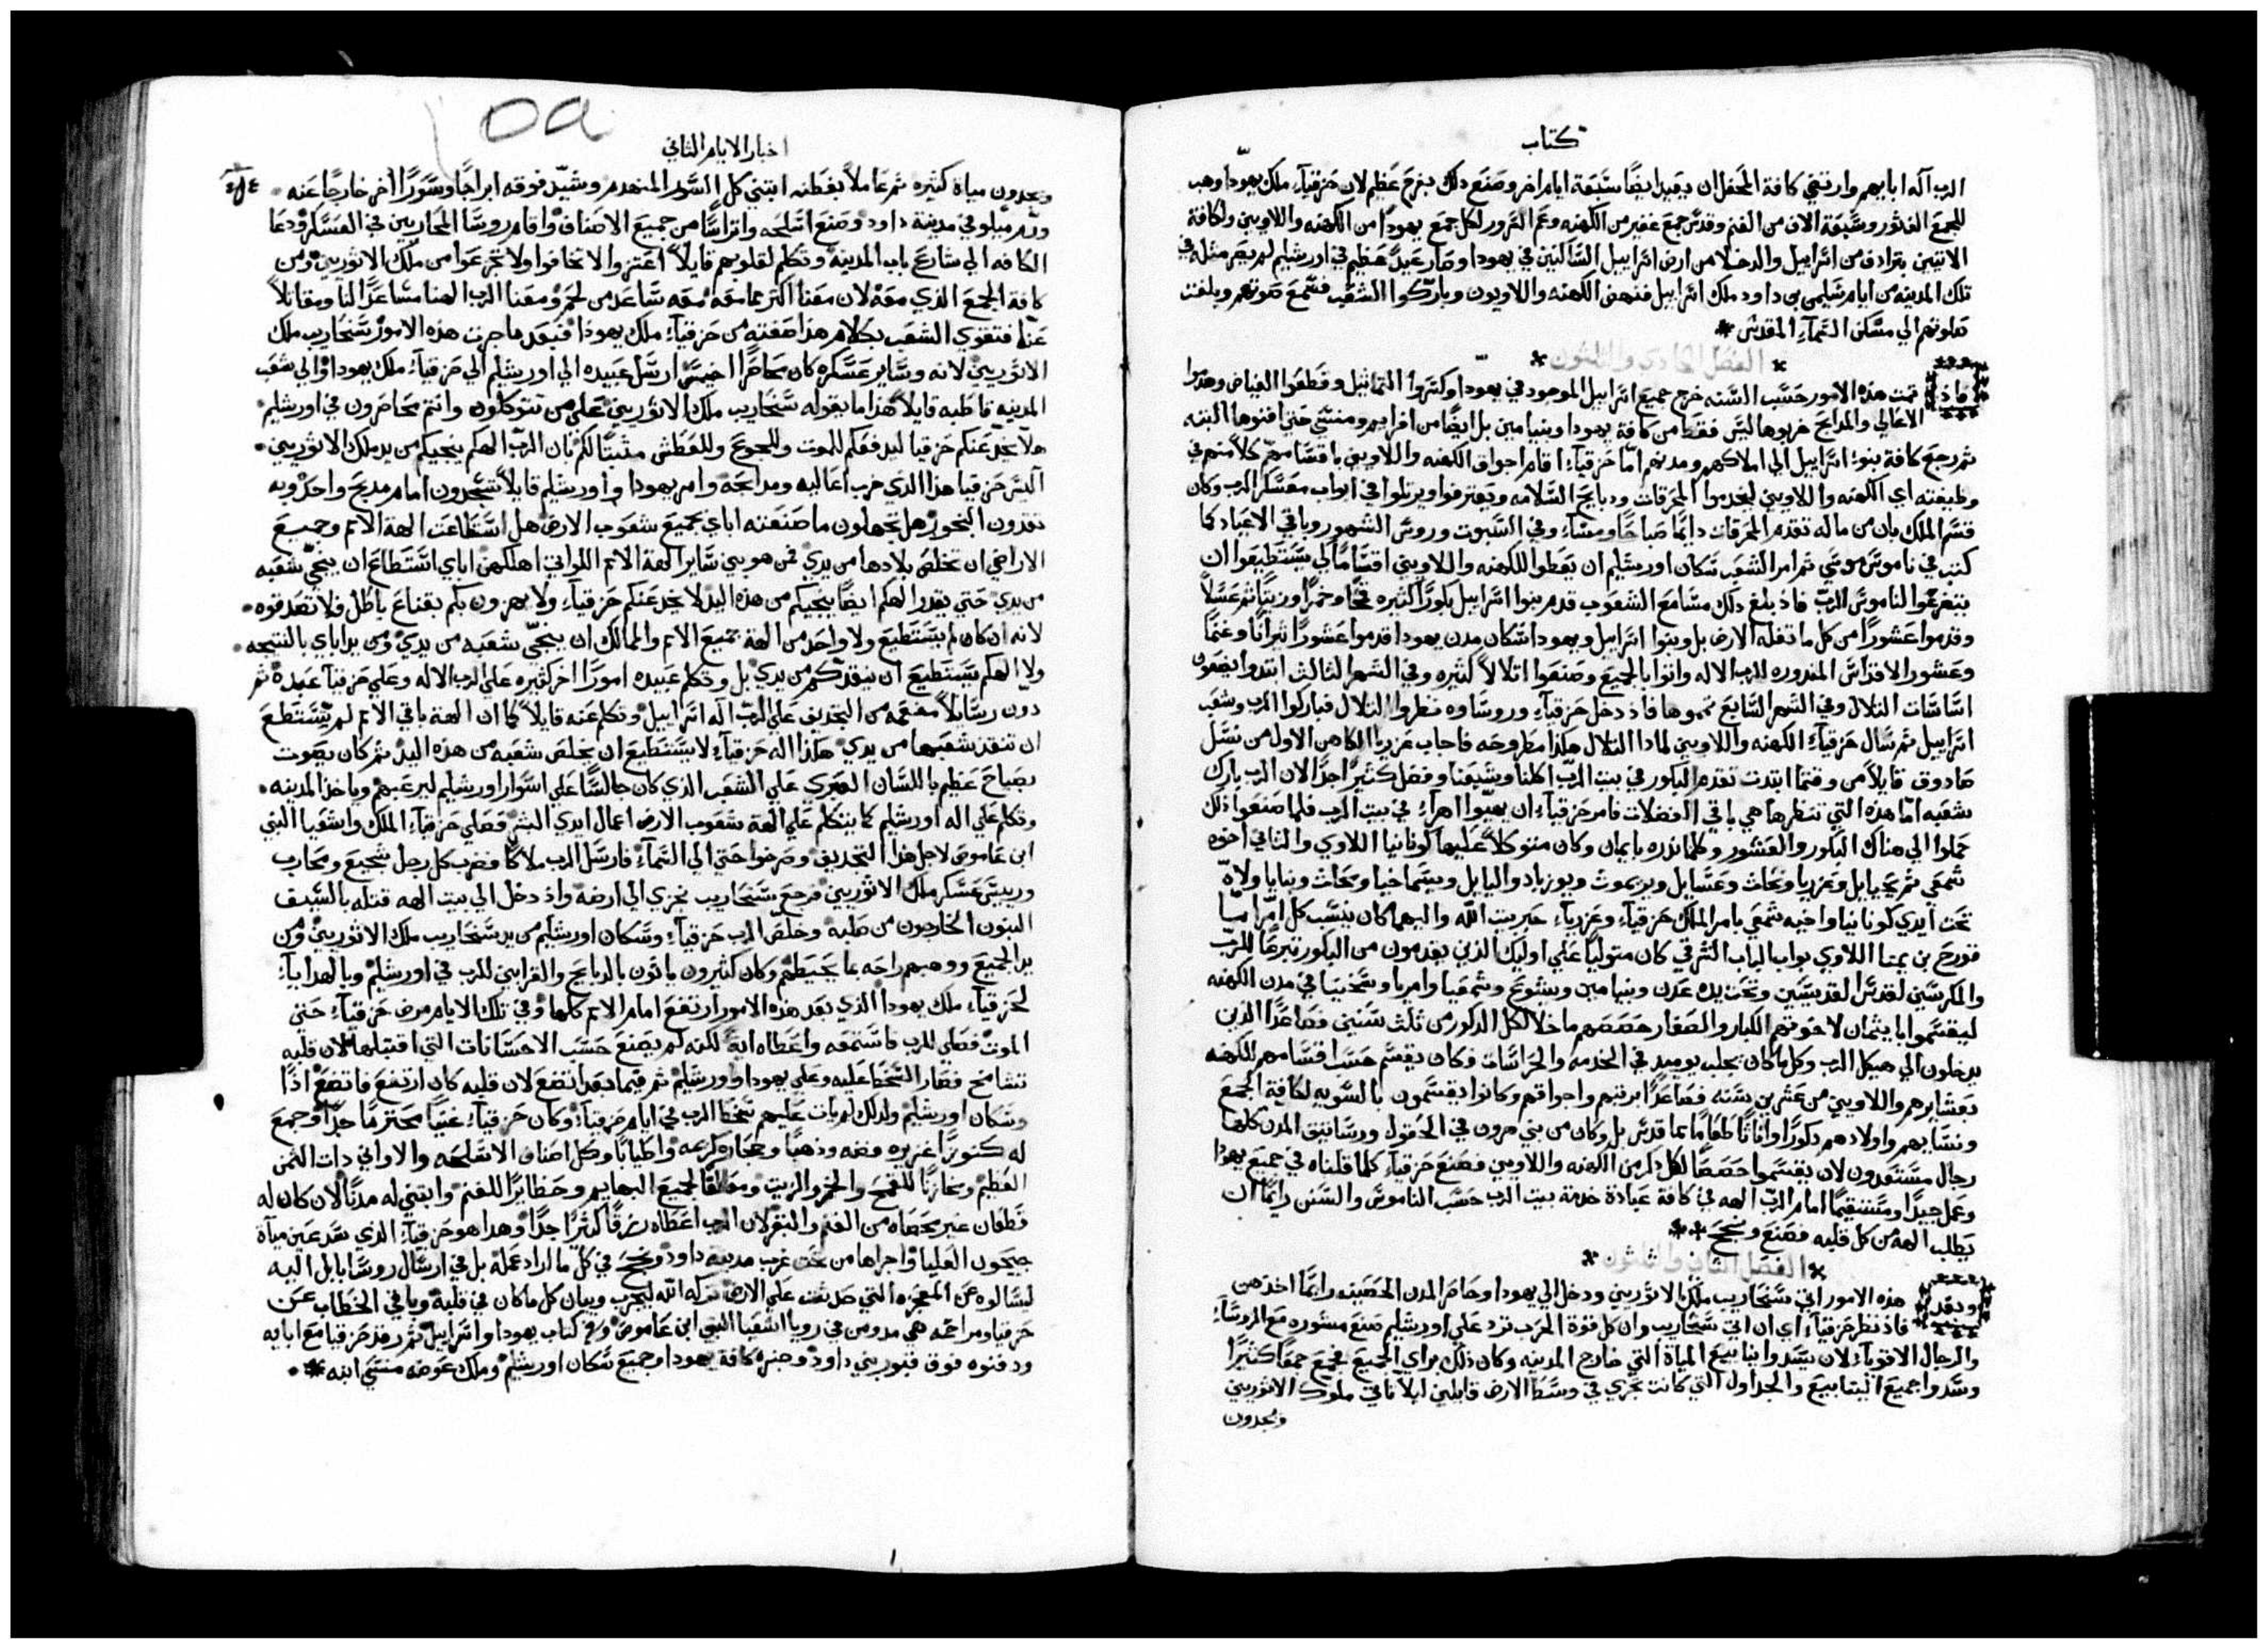 كتاب
الرب اله ابايهم وارتضي كافة المحفل ان يعيد ايضًا سبعة ايام اخر وصنع ذلك بفرح عظيم لان حزقياء ملك يهودا وهب
للجمع الف ثور وسبعة الاف من الغنم وقدس جمع غفير من الكهنه وعم السرور لكل جمع يهودا من الكهنه واللاويين ولكافة
الاتيين بترادف من اسراييل والدخلا من ارض اسراييل الساكنين في يهودا وصار عيدٌ عظيم في اورشليم لم يصر مثله في
تلك المدينه من ايام سليمن بن داود ملك اسراييل فنهض الكهنه واللاويون وباركوا الشعب فسمع صوتهم وبلغت
صلوتهم الي مسكن السماء المقدس
الفصل الحادي والثلثون
فاذ تمت هذه الامور حسب السنه خرج جميع اسراييل الموجود في يهودا وكسروا التماثيل وقطعوا الغياض وهدموا
الاعالي والمدابح خربوها ليس فقط من كافة يهودا وبنيامين بل ايضًا من افرايم ومنسي حتي افنوها البته
ثم رجع كافة بنوا اسراييل الي املاكهم ومدنهم امّا حزقياء اقام اجواق الكهنه واللاويين باقسامهم كلا منهم في
وظيفته اي الكهنه واللاويين ليخدموا المحرقات ودبايح السلامه ويعترفوا ويرتلوا في ابواب معسكر الرب وكان
قسم الملك بان من ماله تقدم المحرقات دايمًا صباحًا ومساءً وفي السبوت وروس الشهور وباقي الاعياد كما
كتب في ناموس موسي ثم امر الشعب سكان اورشليم ان يعطوا للكهنه واللاويين اقسامًا لكي يستطيعوا ان
يتفرغوا لناموس الرب فاذ بلغ ذلك مسامع الشعوب قدم بنوا اسراييل بكورًا كثيره قمحًا وخمرًا وزيتًا ثم عسلاً
وقدموا عشورًا من كل ما تغله الارض بل وبنوا اسراييل ويهودا سكان مدن يهودا قدموا عشورًا ثيرانًا وغنمًا
وعشور الاقداس المندوره للرب الاله واتوا بالجميع وصنعوا اتلالاً كثيره وفي الشهر الثالث ابتدوا يضعون
اساسات التلال وفي الشهر السابع تمموها فاذ دخل حزقياء وروساوه نظروا التلال فباركوا الرب وشعب
اسراييل ثم سال حزقياء الكهنه واللاويين لمادا التلال هكذا مطروحه فاجاب عزريا الكاهن الاول من نسل
صادوق قايلاً من وقتما ابتدت تقدم البكور في بيت الرب اكلنا وشبعنا وفضل كثيرًا جدًا لان الرب بارك
شعبه امّا هذه التي تنظرها هي باقي الفضلات فامر حزقياء ان يهيّوا اهراء في بيت الرب فلما صنعوا ذلك
حملوا الي هناك البكور والعشور وكلما نذره بايمان وكان متوكلاً عليها كونانيا اللاوي والثاني اخوه
شمعي ثم يحياييل وعزريا ونحاث وعسايل ويريموث ويوزباد واليايل ويسماخيا ومحاث وبنايا ولاة
تحت ايدي كونانيا واخيه شمعي بامر الملك حزقياء وعزرياء حبر بيت الله واليهما كان ينسب كل امر اميا
قورح بن يمنا اللاوي بواب الباب الشرقي كان متوليًا علي اوليك الذين يقدمون من البكور تبرعًا للرب
والمكرسين لقدس القديسين وتحت يده عدن وبنيامين ويشوع وشمعيا وامريا وشخنيا في مدن الكهنه
ليقسموا بايتمان لاخوتهم الكبار والصغار حصصهم ماخلا لكل الدكور من ثلث سنين فصاعدًا الذين
يدخلون الي هيكل الرب وكل ما كان يجلب يوميد في الخدمه والحراسات وكان يقسم حسب اقسامهم للكهنه
بعشايرهم واللاويين من عشرين سنه فصاعدًا برتبهم واجواقهم وكانوا يقتسمون بالسويه لكافة الجمع
ونسايهم واولادهم دكورًا واناثًا طعامًا مما قدس بل وكان من بني هرون في الحقول ورساتيق المدن كلها
رجال مستعدون لان يقسموا حصصًا لكل دكر من الكهنه واللاويين فصنع حزقياء كلما قلناه في جميع يهودا
وعمل جيدًا ومستقيمًا امام الرب الهه في كافة عبادة خدمة بيت الرب حسب الناموس والسنن رايمًا ان
يطلب الهه من كل قلبه فصنع ونجح
الفصل الثاني والثلثون
وبعد هذه الامور اتي سنحاريب ملك الاثوريين ودخل الي يهودا وحاصر المدن الحصينه رايمًا اخذهن
فاذ نظر حزقياء اي ان اتي سنحاريب وان كل قوة الحرب ترد علي اورشليم صنع مشوره مع الروساء
والرجال الاقوياء لان يسدوا ينابيع المياة التي خارج المدينه وكان ذلك براي الجميع فجمع جمعًا كثيرًا
وسدوا جميع الينابيع والجداول التي كانت تجري في وسط الارض قايلين ليلا تاتي ملوك الاثوريين
ويجدون
اخبار الايام الثاني
ويجدون مياة كثيره ثم عاملاً بفطنه ابتني كل السور المنهدم وشيّد فوقه ابراجًا وسورًا اخر خارجًا عنه
ورمّ ميلو في مدينة داود وصنع اسلحه واتراسًا من جميع الاصناف واقام روسا المحاربين في العسكر ودعا
الكافه الي شارع باب المدينه وتكلم لقلوبهم قايلاً اعتزوا لا تخافوا ولا تجزعوا من ملك الاثوريين ومن
كافة الجمع الذي معه لان معنا اكثر مما معه معه ساعد من لحم ومعنا الرب الهنا مساعدًا لنا ومقاتلاً
عنّا فتقوي الشعب بكلام هذا صفته من حزقياء ملك يهودا فبعد ما جرت هذه الامور سنحاريب ملك
الاثوريين لانه وساير عسكره كان محاصرًا لخيس ارسل عبيده الي اورشليم الي حزقياء ملك يهودا والي شعب
المدينه قاطبه قايلاً هذا ما يقوله سنحاريب ملك الاثوريين علي من تتوكلون وانتم محاصرون في اورشليم
هلا يخدعنكم حزقيا ليدفعكم للموت وللجوع وللعطش مثبتًا لكم بان الرب الهكم ينجيكم من يد ملك الاثوريين
اليس حزقيا هذا الذي خرب اعاليه ومدابحه وامر يهودا واورشليم قايلاً تسجدون امام مدبح واحد وبه
تقدون البخور هل تجهلون ما صنعته اباي بجميع شعوب الارض هل استطاعت الهة الامم وجميع
الاراضي ان تخلص بلادها من يدي فمن هو بين ساير الهة الامم اللواتي اهلكهن اباي استطاع ان ينجّي شعبه
من يدي حتي يقدر الهكم ايضًا ينجيكم من هذه اليد لا يخدعنكم حزقياء ولا يهزون بكم بقناع باطل فلا تصدقوه
لانه ان كان لم يستطيع ولا واحد من الهة جميع الامم والممالك ان ينجّي شعبه من يدي ومن يد اباي بالنتيجه
ولا الهكم يستطيع ان ينقذكم من يدي بل وتكلم عبيده امورًا اخر كثيره علي الرب الاله وعلي حزقيا عبده ثم
دون رسايلاً مفعمه من التجديف علي الرب اله اسراييل وتكلم عنه قايلاً كما ان الهة باقي الامم لم يستطع
ان تنقذ شعبها من يدي هكذا اله حزقياء لا يستطيع ان يخلص شعبه من هذه اليد ثم كان يصوت
بصياح عظيم باللسان العبري علي الشعب الذي كان جالسًا علي اسوار اورشليم ليرعبهم وياخذ المدينه
وتكلم علي اله اورشليم كما يتكلم علي الهة شعوب الارض اعمال ايدي البشر فصلي حزقياء الملك واشعيا النبي
ابن عاموص لاجل هذا التجديف وصرخوا حتي الي السماء فارسل الرب ملاكًا فضرب كل رجل شجيع ومحارب
ورييس عسكر ملك الاثوريين فرجع سنحاريب بخزي الي ارضه واذ دخل الي بيت الهه قتله بالسيف
البنون الخارجون من صلبه وخلّص الرب حزقياء وسكان اورشليم من يد سنحاريب ملك الاثوريين ومن
يد الجميع ووهبهم راحه بما يحيطهم وكان كثيرون ياتون بالدبايح والقرابين للرب في اورشليم وبالهدايا
لحزقياء ملك يهودا الذي بعد هذه الامور ارتفع امام الامم كلها وفي تلك الايام مرض حزقياء حتي
الموت فصلي للرب فاستمعه واعطاه ايةً لكنه لم يصنع حسب الاحسانات التي اقتبلها لان قلبه
تشامخ فصار السخط عليه وعلي يهودا واورشليم ثم فيما بعد اتضع لان قلبه كان ارتفع فاتضع اذًا
وسكان اورشليم ولدلك لم يات عليهم سخط الرب في ايام حزقياء وكان حزقياء غنيًا محترمًا جدًا وجمع
له كنوزًا غزيره فضه وذهبًا وحجاره كريمه واطيابًا وكل اصناف الاسلحه والاواني دات الثمن
العظيم ومخازنًا للقمح والخمر والزيت ومعالفًا لجميع البهايم وحظايرًا للغنم وابتني له مدنًا لان كان له
قطعان غير محصاه من الغنم والبقر لان الرب اعطاه رزقًا كثيرًا جدًا وهدا هو حزقياء الذي سد عين مياة
جيحون العليا واجراها من تحت غرب مدينة داود ونجح في كل ما اراد عمله بل في ارسال روسا بابل اليه
ليسالوه عن المعجزه التي حدثت علي الارض تركه الله ليجرب ويبان كل ما كان في قلبه وباقي الخطاب عن
حزقيا ومراحمه هي مدومن في رويا اشعيا النبي ابن عاموص وفي كتاب يهودا واسراييل ثم رقد حزقيا مع ابايه
ودفنوه فوق قبور بني داود وجنزه كافة يهودا وجميع سكان اورشليم وملك عوضه منسي ابنه